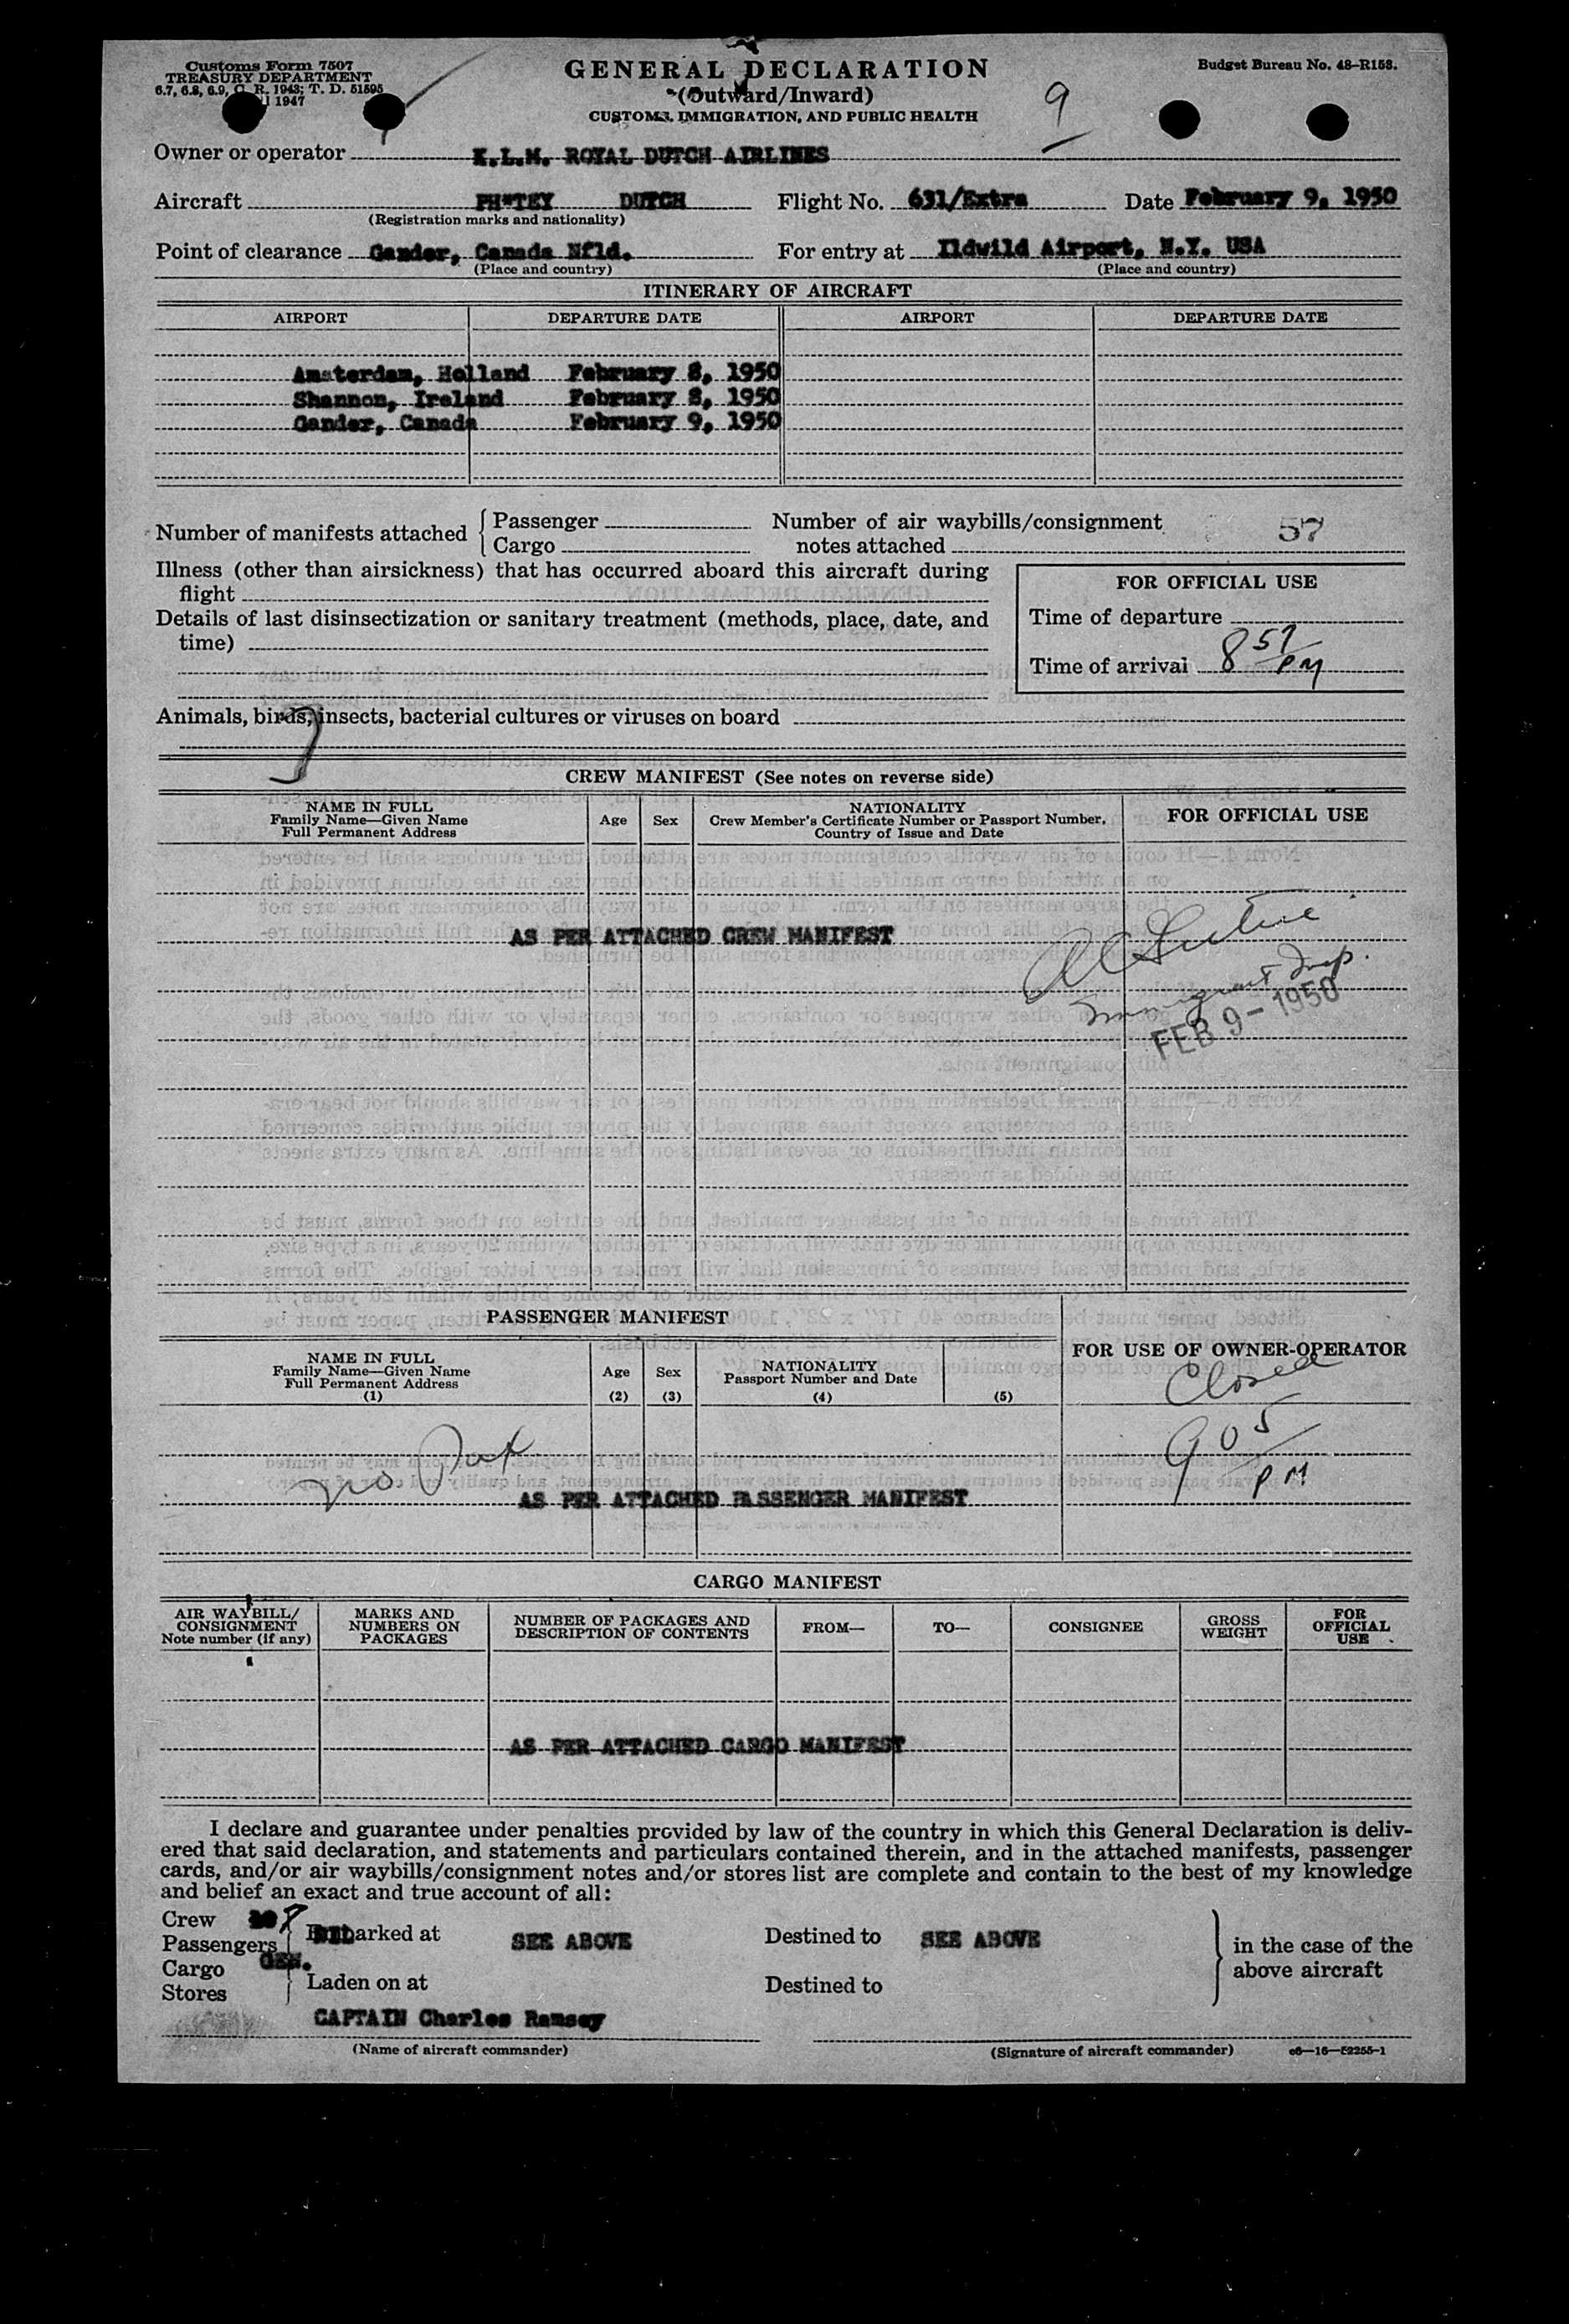 Customs Form 7507
TREASURY DEPARTMENT
6.7, 6.8, 6.9, C. R. 1943; T. D. 51595
1947
GENERAL DECLARATION
(Outward/Inward)
CUSTOMS, IMMIGRATION, AND PUBLIC HEALTH
Budget Bureau No. 48-R153.
9
Owner or operator K.L.M. ROYAL DUTCH AIRLINES
Aircraft PH*TEY DUTCH Flight No. 631/Extra Date February 9, 1950
(Registration marks and nationality)
Point of clearance Gander, Canada Nfld. For entry at Ildwild Airport, N.Y. USA
(Place and country) (Place and country)
ITINERARY OF AIRCRAFT
AIRPORT DEPARTURE DATE AIRPORT DEPARTURE DATE
Amsterdam, Holland February 8, 1950
Shannon, Ireland February 8, 1950
Gander, Canada February 9, 1950
Number of manifests attached { Passenger
Cargo
Number of air waybills/consignment
notes attached 57
Illness (other than airsickness) that has occurred aboard this aircraft during
flight
Details of last disinsectization or sanitary treatment (methods, place, date, and
time)
FOR OFFICIAL USE
Time of departure
Time of arrival 8 57 PM
Animals, birds, insects, bacterial cultures or viruses on board
CREW MANIFEST (See notes on reverse side)
NAME IN FULL
Family Name—Given Name
Full Permanent Address
Age
Sex
NATIONALITY
Crew Member's Certificate Number or Passport Number,
Country of Issue and Date
FOR OFFICIAL USE
AS PER ATTACHED CREW MANIFEST
Immigrant Insp.
FEB 9 - 1950
PASSENGER MANIFEST
NAME IN FULL
Family Name—Given Name
Full Permanent Address
(1)
Age
(2)
Sex
(3)
NATIONALITY
Passport Number and Date
(4)
(5)
FOR USE OF OWNER-OPERATOR
Closed
9 05
PM
no
AS PER ATTACHED PASSENGER MANIFEST
CARGO MANIFEST
AIR WAYBILL/
CONSIGNMENT
Note number (if any)
MARKS AND
NUMBERS ON
PACKAGES
NUMBER OF PACKAGES AND
DESCRIPTION OF CONTENTS
FROM—
TO—
CONSIGNEE
GROSS
WEIGHT
FOR
OFFICIAL
USE
AS PER ATTACHED CARGO MANIFEST
I declare and guarantee under penalties provided by law of the country in which this General Declaration is deliv-
ered that said declaration, and statements and particulars contained therein, and in the attached manifests, passenger
cards, and/or air waybills/consignment notes and/or stores list are complete and contain to the best of my knowledge
and belief an exact and true account of all:
Crew
Passengers
Cargo GEN.
Stores
Embarked at SEE ABOVE Destined to SEE ABOVE
Laden on at Destined to
in the case of the
above aircraft
CAPTAIN Charles Ramsey
(Name of aircraft commander) (Signature of aircraft commander) c6—16—52255-1